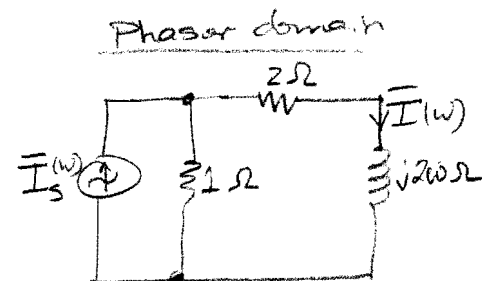 Phasor domain
2Ω
Ī(ω)
Ī_s(ω)
1 Ω
j2ω Ω